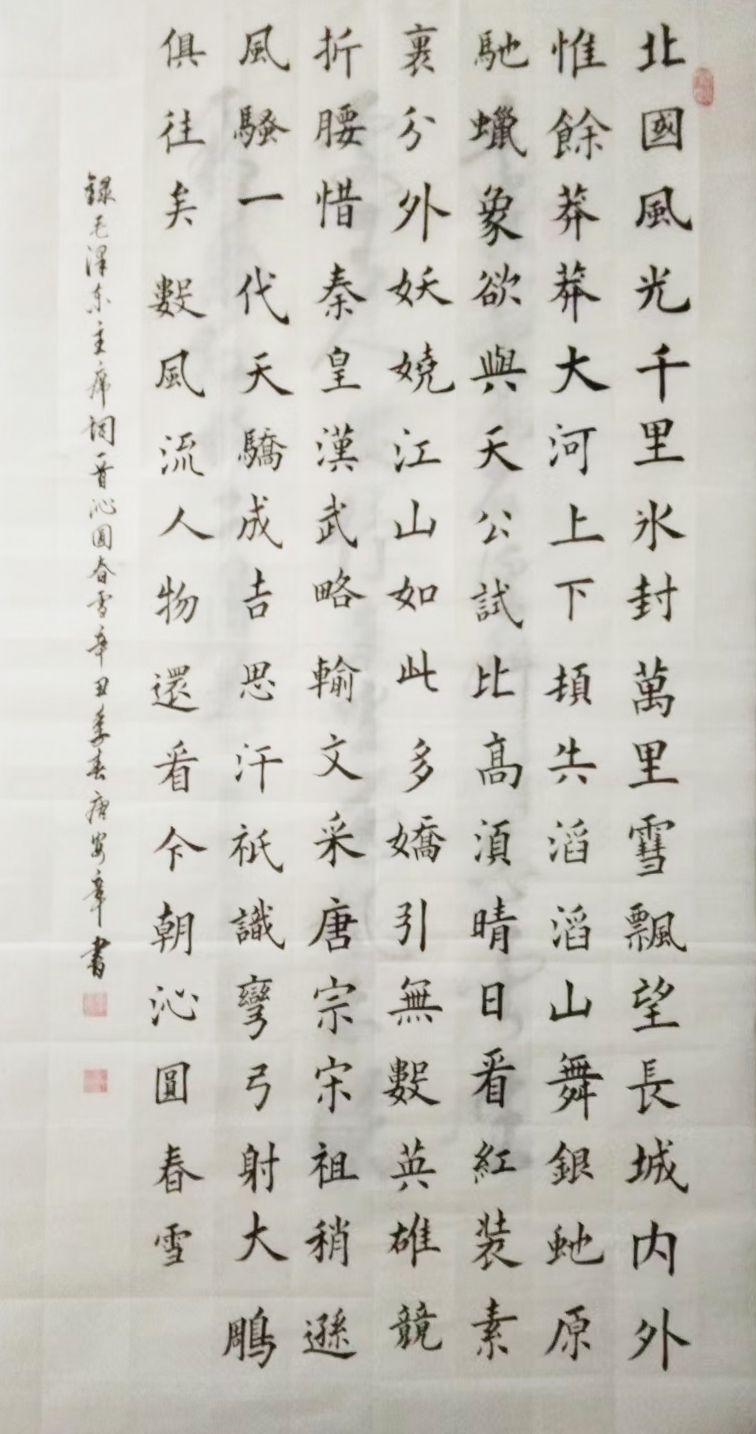 北國風光千里氷封萬里雪飄望長城内外
惟餘莽莽大河上下頓失滔滔山舞銀虵原
馳蠟象欲與天公試比高須晴日看紅装素
裹分外妖嬈江山如此多嬌引無數英雄競
折腰惜秦皇漢武略輸文采唐宗宋祖稍遜
風騷一代天驕成吉思汗祇識彎弓射大鵰
俱往矣數風流人物還看今朝沁圓春雪
録毛澤东主席詞一首沁圓春雪辛丑季春唐安章書